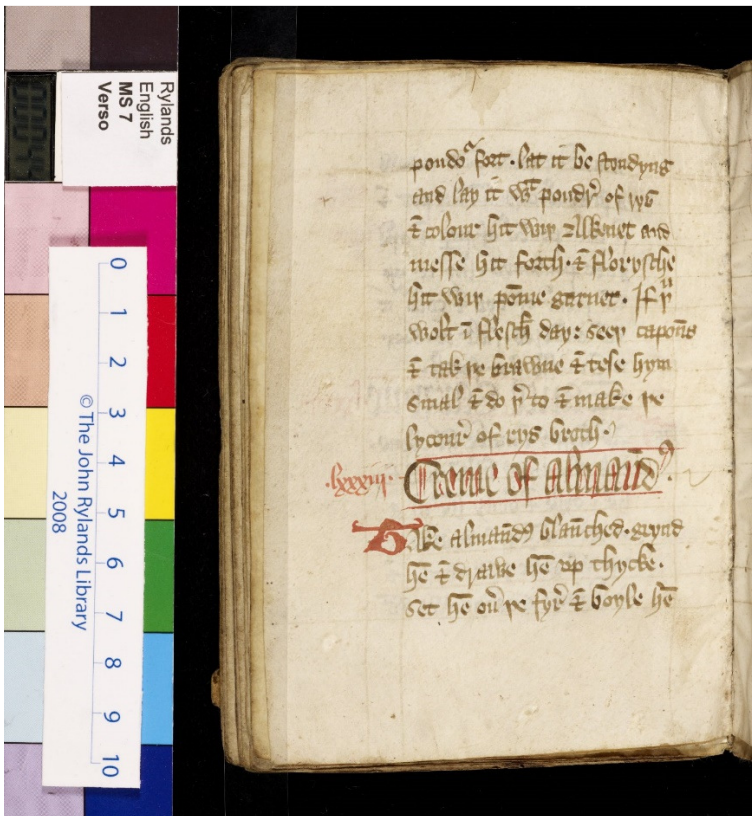 Rylands
English
MS 7
Verso
0
1
2
3
4
5
6
7
8
9
10
© The John Rylands Library
2008
poudoʳ fort. lat it be stondyng
and lay it wᵗ poudr̄ of rys
⁊ colour hit wiþ Alkenet and
messe hit forth. ⁊ floryssche
hit wiþ pōme garnet. If þᵘ
wolt ī flesch day: seeþ capoūs
⁊ tak þe brawne ⁊ tese hym
smal ⁊ do þʳto ⁊ make þe
lycour of rys broth.
.lxxxiij. Creme of almaūdꝰ.
Take almaūdꝰ blaūched. grynd
hē ⁊ drawe hē up thycke.
set hē ou̓ þe fyr̄ ⁊ boyle hē